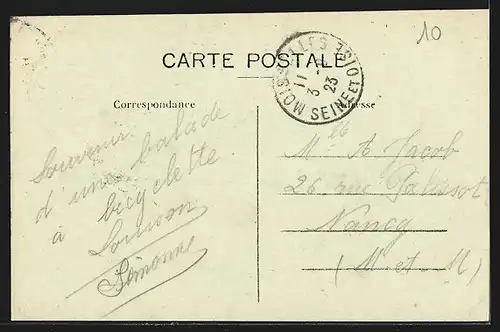 10
CARTE POSTALE
MOISSELLES SEINE ET OISE
11 -
3
23
Correspondance
Adresse
Souvenir
d'une balade
à bicyclette
Simonne
Mlle A Jacob
26, rue Palissot
Nancy
(M.-et-M)